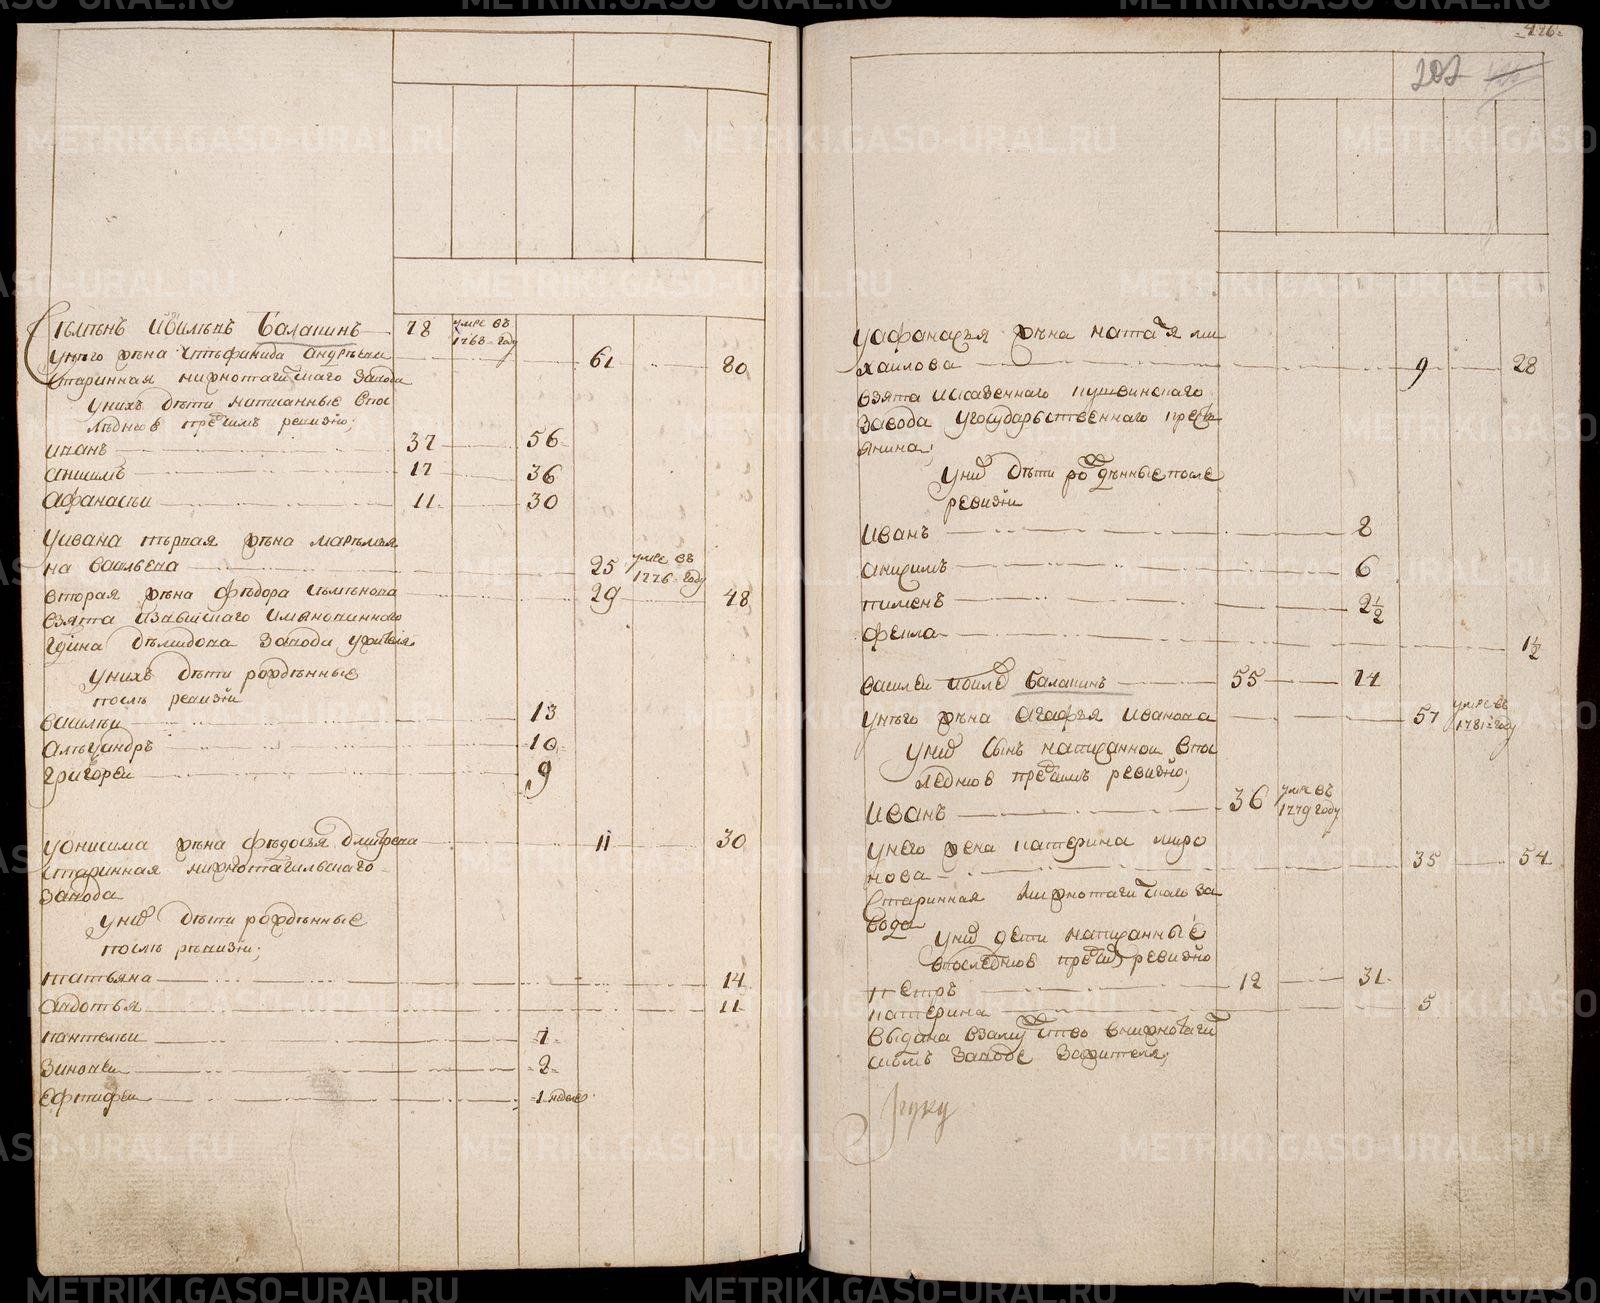 Семенъ Ивилевъ Балакинъ 78 умре въ
1768 году
у него жена Стефанида Андреева 61 80
старинная нижнотагилскаго завода
у нихъ дети написанные впо
следнюю пред симъ ревизию;
иванъ 37 56
анисимъ 17 36
Афанасеи 11 30
у ивана первая жена маремья
на васильева 25 умре въ
1776 году
вторая жена федора семенова 29 48
взята
гдина демидова завода у жителя
у нихъ дети рожденные
после ревизии
василеи 13
александръ 10
григореи 9
у онисима жена федосья дмитрева 11 30
старинная нижнотагильскаго
завода
у них дети рожденные
после ревизии;
татьяна 14
авдотья 11
пантелеи 7
зиновеи 2
ефтифеи 1 неделе
476
202
у афанасья жена наталя ми
хаилова 9 28
взята исказеннаго кушвинскаго
завода у государственнаго кресть
янина;
у них дети рожденные после
ревизии
Иванъ 8
анисимъ 6
пименъ 2 1/2
фекла 1 1/2
василеи Ивилев Балакинъ 55 74
у него жена Агафья Иванова 57 умре въ
1781 году
у них сынъ написаннои впо
следнюю пред симъ ревизию;
Иванъ 36 умре въ
1779 году
у него жена катерина миро
нова 35 54
старинная нижнотагилскаго за
вода
у них дети написанные
в последнюю пред сим ревизию
петръ 12 31
катерина 5
выдана взамужство внижнотагил
скомъ заводе за жителя;
руку
METRIKI.GASO-URAL.RU